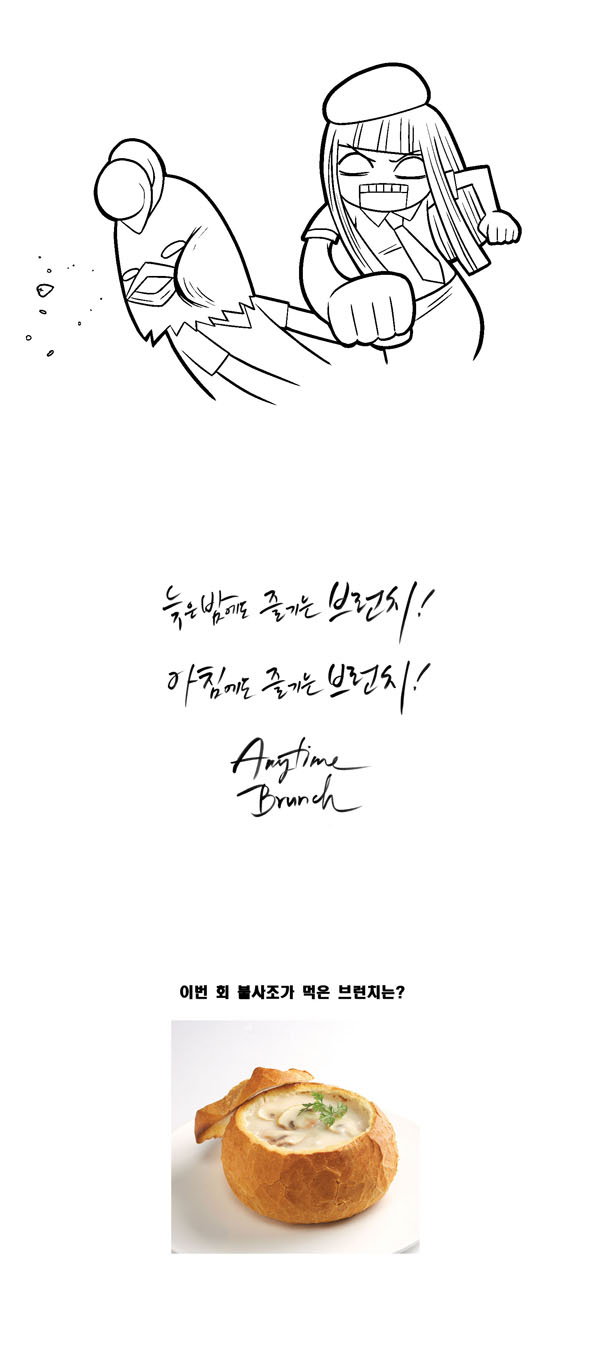 늦은 밤에도 즐기는 브런치!
아침에도 즐기는 브런치!
Anytime
Brunch
이번 회 불사조가 먹은 브런치는?